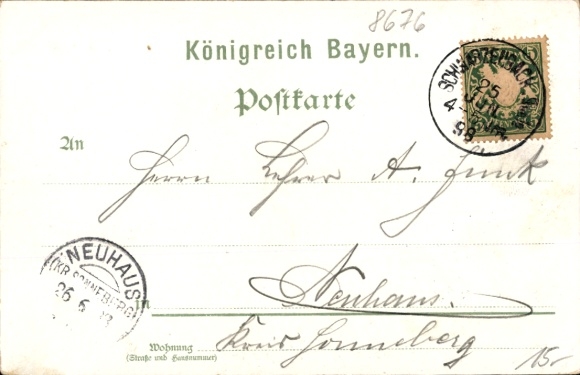 8676
Königreich Bayern.
Postkarte
SCHWARZENBACH
25
JUN
98
An
Herrn Lehrer A. Funk
NEUHAUS
(KR. SONNEBERG)
26 6
in
Neuhaus.
Kreis Sonneberg
Wohnung
(Straße und Hausnummer)
15-